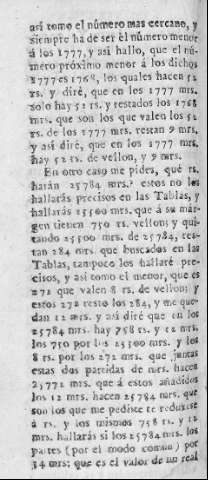 asi como el número mas cercano, y
siempre ha de ser el número menor
á los 1777, y asi hallo, que el nú-
mero próximo menor á los dichos
1777 es 1768, los quales hacen 52
rs. y diré, que en los 1777 mrs.
solo hay 52 rs. y restados los 1768
mrs. que son los que valen los 52
rs. de los 1777 mrs. restan 9 mrs.
y asi diré, que en los 1777 mrs.
hay 52 rs. de vellon, y 9 mrs.
En otro caso me pides, qué rs.
harán 25784 mrs.? estos no los
hallarás precisos en las Tablas, y
hallarás 25500 mrs. que á su már-
gen tienen 750 rs. vellon; y qui-
tando 25500 mrs. de 25784, res-
tan 284 mrs. que buscados en las
Tablas, tampoco los hallaré pre-
cisos, y asi tomo el menor, que es
272 que valen 8 rs. de vellon; y
estos 272 resto los 284, y me que-
dan 12 mrs. y asi diré que en los
25784 mrs. hay 758 rs. y 12 mrs.
los 750 por los 25500 mrs. y los
8 rs. por los 272 mrs. que juntas
estas dos partidas de mrs. hacen
25772 mrs. que á estos añadidos
los 12 mrs. hacen 25784 mrs. que
son los que me pediste te reduxese
á rs. y los mismos 758 rs. y 12
mrs. hallarás si los 25784 mrs. los
partes (por el modo comun) por
34 mrs. que es el valor de un real